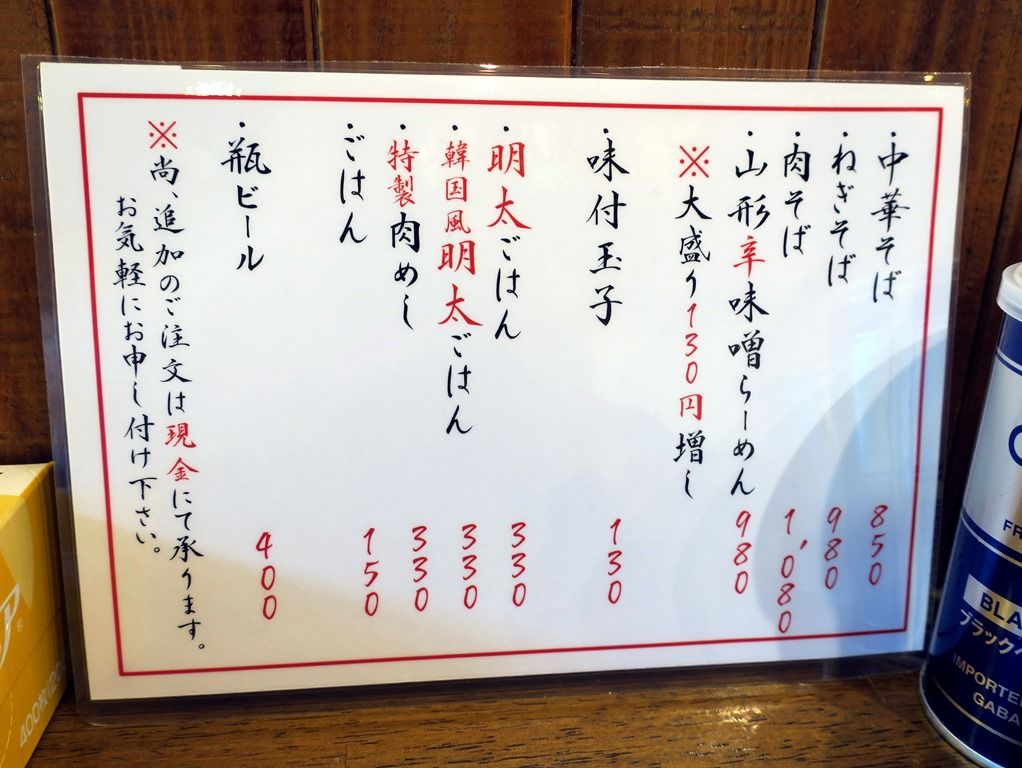 ・中華そば 850
・ねぎそば 980
・肉そば 1,080
・山形辛味噌らーめん 980
※大盛り130円増し
・味付玉子 130
・明太ごはん 330
・韓国風明太ごはん 330
・特製肉めし 330
・ごはん 150
・瓶ビール 400
※尚、追加のご注文は現金にて承ります。
お気軽にお申し付け下さい。
FR
BLA
ブラック
IMPORTE
GABA